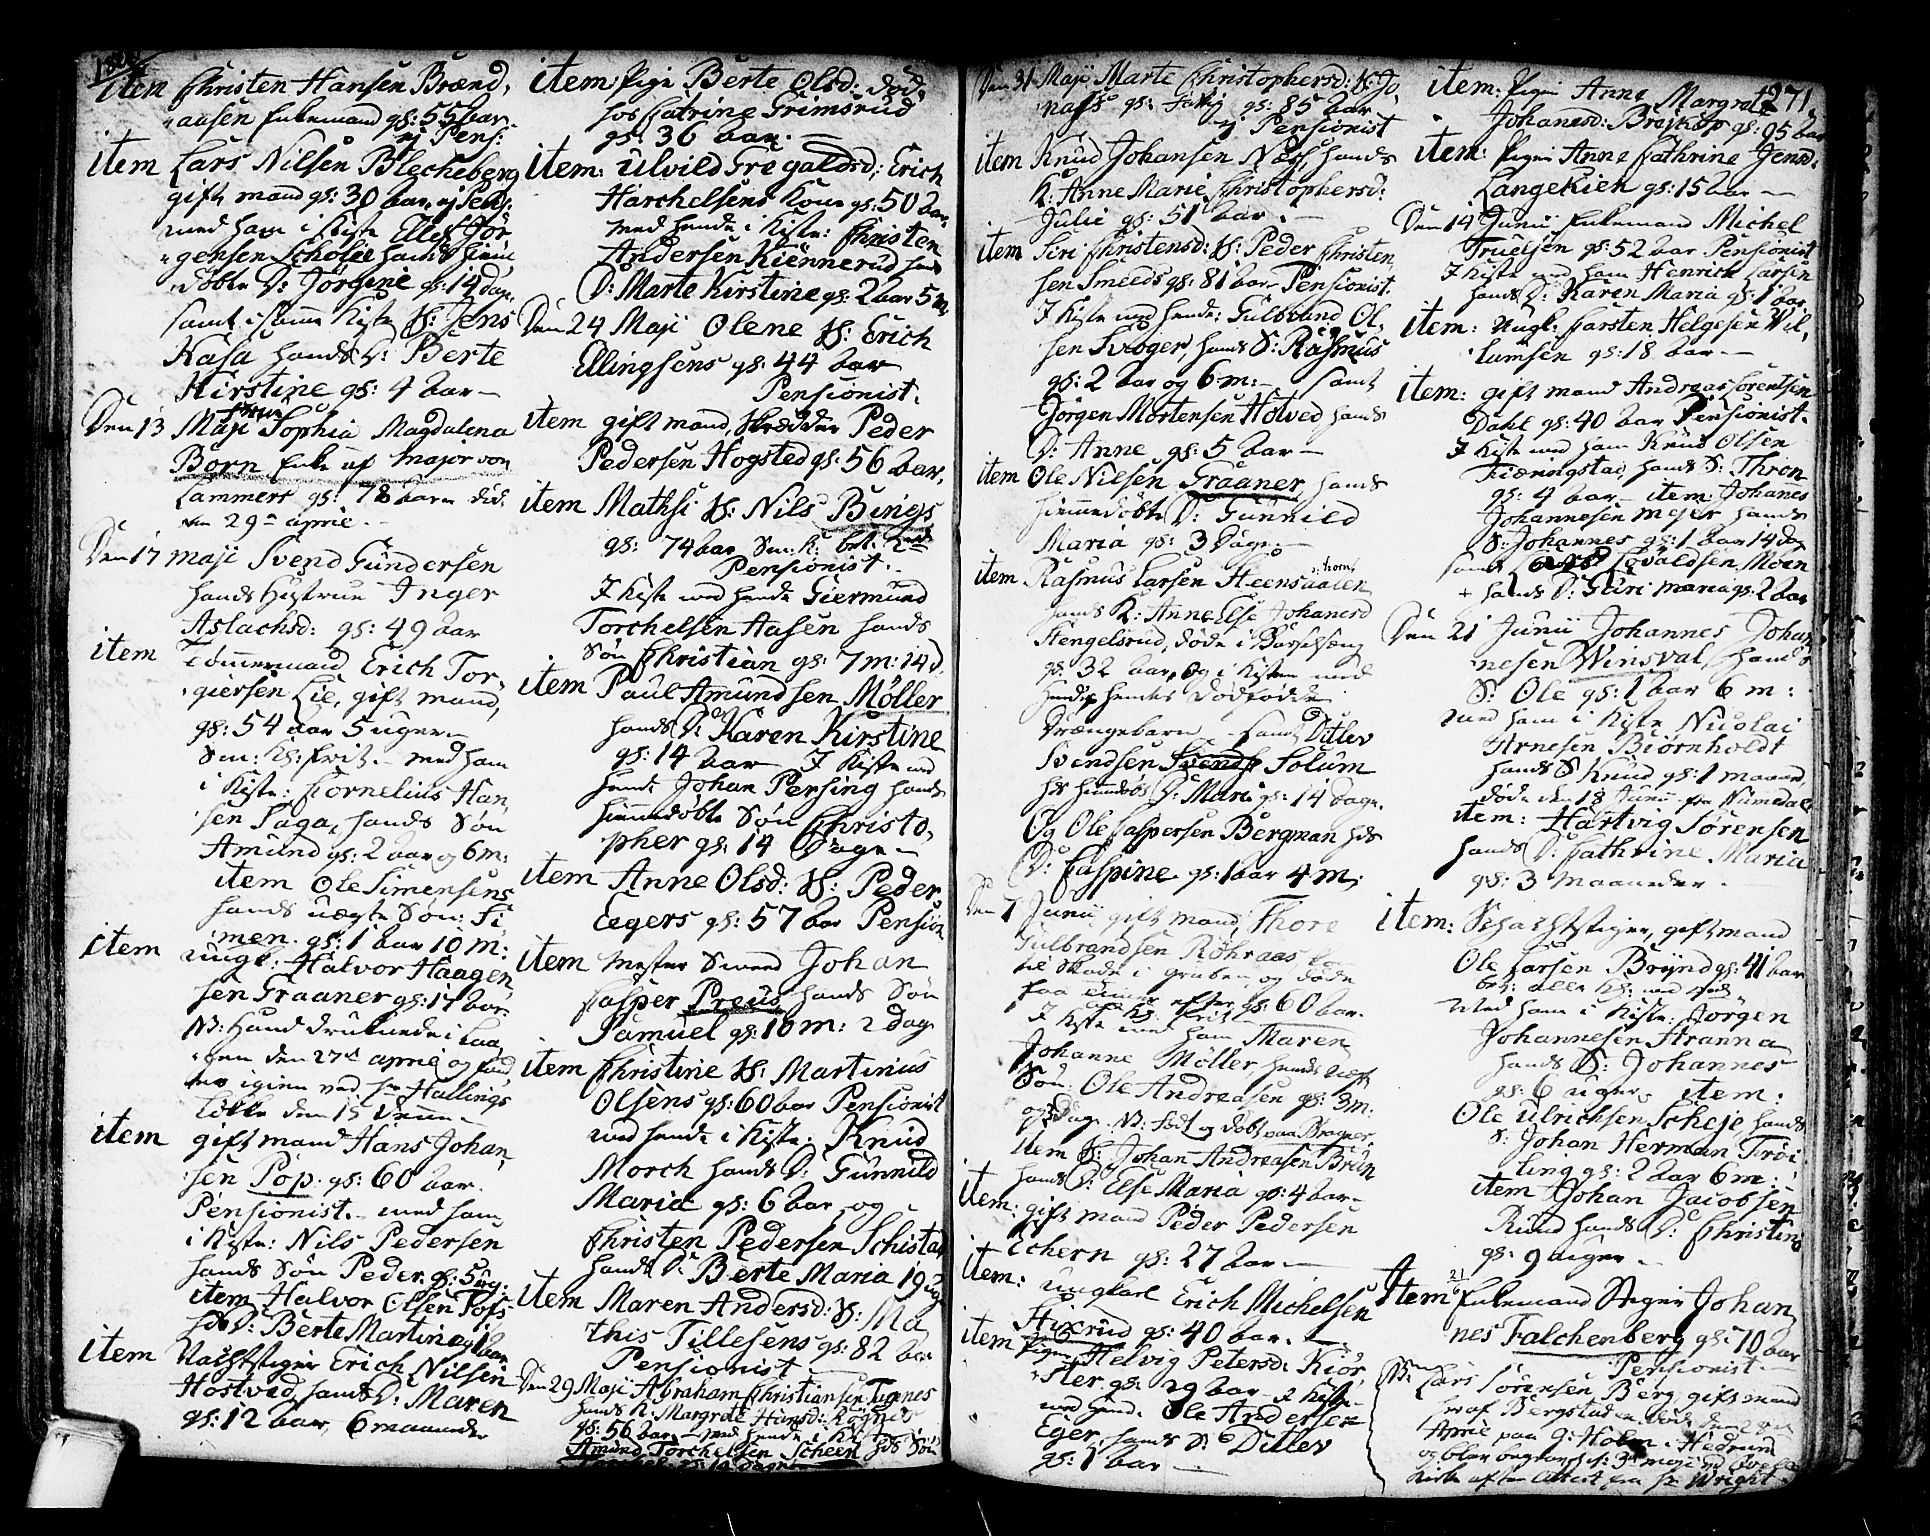 item Christen Hansen Brænd,
aasen Enkemand gl: 55 aar
ej Pens:
item Lars Nilsen Blecheberg
gift mand gl: 30 aar, ej Pens:
med ham i Kiste Ellef Jör,
gensen Scholie hands hiem
döbte D: Jörgine gl: 14 dage,
samt i samme Kiste S: Jens
Kasa hands D: Berte
Kirstine gl: 4 aar
Den 13 Maji Sophia Magdalena
Born Enke af Major von
Lammers gl: 78 aar död
den 29de april
Den 17 Maji Svend Gundersen
hands Hustrue Inger
Aslachsd: gl: 49 aar
item Tömmermand Erich Tor,
giersen Lie, gift mand,
gl: 54 aar 5 uger
med ham
i Kiste: Cornelius Han,
sen Saga, hands Sön
Amund gl: 2 aar og 6 m:
item Ole Simensens
hands uægte Sön: Si
men. gl: 1 aar 10 m:
item ungk: Halvor Haagen
sen Graaner gl: 17 aar
NB: hand druknede i Laa,
gen den 27de april og fand
tes igien ved Hallings
den 15 denne
item gift mand Hans Johan,
sen Pop. gl: 60 aar.
Pensionist. med ham
i Kiste: Nils Pedersen
hands Sön Peder gl: 5 ug:
item Halvor Olsen Fos
hds D: Berte Martine gl: 1 aar
item Nachtstiger Erich Nilsen
Hostved, hands D: Maren
gl: 12 aar, 6 maaneder
item: Pige Berte Olsd: död
hos Catrine Grimsrud
gl: 36 aar.
item: Ulvild Gregaldsd: Erich
Harchelsens Kone gl: 50 aar,
med hende i Kiste: Christen
Andersen Kiennerud hands
D: Marte Kirstine gl: 2 aar 5 m:
Den 24 Maji Olene S: Erich
Ellingsens gl: 44 aar
Pensionist.
item gift mand, Skrædder Peder
Pedersen Hogsted gl: 56 aar,
item Mathsi S: Nils Bings
gl: 74 aar
Pensionist.
I Kiste med hende Giermund
Torchelsen Aasen hands
Sön Christian gl: 7 m: 14 d,
item Paul Amundsen Möller
hands D: Karen Kirstine
gl: 14 aar I Kiste med
hende Johan Persing hands
hiemmedöbte Sön Christo,
pher gl: 14 Dage
item Anne Olsd: S: Peder
Eegers gl: 57 aar Pension
item Mester Smed Johan
Casper Preus, hands Sön
Samuel gl: 10 m: 2 dag
item Christine S: Martinus
Olsens gl: 60 aar Pensionist
med hende i Kiste: Knud
Morch hands D: Gunnild
Maria gl: 6 aar og
Christen Pedersen Schistad
hands D: Berte Maria 19
item Maren Andersd: S: Ma
this Tillesens gl: 82 aar
Pensionist
Den 29 Maji Abraham Christiansen Tegnes
hands K: Margrete Hansd:
gl: 56 aar med hende i Kiste
Amund Torchelsen Scheen hds Sön
Den 31 Maji Marte Christophersd: S: Jo,
nas gl: 85 aar
ej Pensionist
item Knud Johansen Næss hands
K: Anne Marie Christophersd:
Julie gl: 51 aar.
item Siri Christensd: S: Peder Christen
sen Smeeds gl: 81 aar Pensionist.
I Kiste med hende: Gulbrand Ol,
sen Svoger, hands S: Rasmus
gl: 2 aar og 6 m: samt
Jörgen Mortensen Hotved hands
D: Anne gl: 5 aar
item Ole Nilsen Graaner hands
hiemmedöbte D: Gunnild
Maria gl: 3 Dage.
item Rasmus Larsen Steens
hands K: Anne Else Johanesd
Stengelsrud, döde i Barselseng
gl: 32 aar, og i Kisten med
hende hendes Dödfödte
Drængebarn samt Ditlev
Svendsen Solum
hds hiemdöbt D: Mari gl: 14 dage.
Og Ole Caspersen Bergman hds
D: Caspine gl: 1 aar 4 m;
Den 7 Junii gift mand, Thore
Gulbrandsen Röhraas kom
til Skade i gruben, og döde
gl: 60 aar.
I Kiste med ham Maren
Johanne Möller hendes uægte
Sön: Ole Andreasen gl: 3 m:
NB: födt og döbt paa Brager,
item S: Johan Andreasen Brun
hands D: Else Maria gl: 4 aar
item: gift mand Peder Pedersen
Echern gl: 27 aar
item: ungkarl Erich Michelsen
Hixerud gl: 40 aar.
item Pigen Helvig Petersd: Kiös,
ster gl: 29 aar I Kiste
med hende Ole Andersen
Eger, hands S: Ditlev
gl: 1 aar
271.
item: Pigen Anne Margrete
Johanesd: Brejkop gl: 95 aar
item: Pigen Anne Cathrine Jensd:
Langekieh gl: 15 aar
Den 14 Junii Enkemand Michel
Truelsen gl: 52 aar Pensionist
I Kiste med ham Henrich Larsen
hands D: Karen Maria gl: 1 aar
item: Ungk: Carsten Helgesen Wil,
lumsen gl: 18 aar
item: gift mand Andreas Sörentsen
Dahl gl: 40 aar Pensionist.
I Kiste med ham Knud Olsen
Tiæringstad, hands S: Thron
gl: 4 aar item: Johanes
Johannesen Mejer hands
S: Johannes gl: 1 aar 14 dag
samt Lovaldsen Moen
+ hands D: Guri Maria gl: 2 aar
Den 21 Junii Johannes Johan
nesen Winsval, hands
S: Ole gl: 1 aar 6 m:
med ham i Kiste Nicolai
Arnesen Biörnholdt
hands S Knud gl: 1 maaned,
döde den 18 Junii fra Numedal
item: Hartvig Sörensen
hands D: Cathrine Maria
gl: 3 Maaneder.
item: Schachtstiger, gift mand
Ole Larsen Brynd gl: 41 aar
Med ham i Kiste: Jörgen
Johannesen Stranna
hands S: Johannes
gl: 6 uger. item:
Ole Ulrichsen Scheje hands
S: Johan Herman Tröi
ling gl: 2 aar 6 m:
item Johan Jacobsen
Ruud hands D: Christine
gl: 9 uger
Item 21/6 Enkemand Stiger Johan
nes Falchenberg gl: 70 aar
Pensionist
NB: Lars Sörensen Berg gift mand
her af Bergstaden döde den
April paa G: Holm i Hedrum
og blev begravet d: 3 maji ved
Kirke efter Attest fra Hr Wright